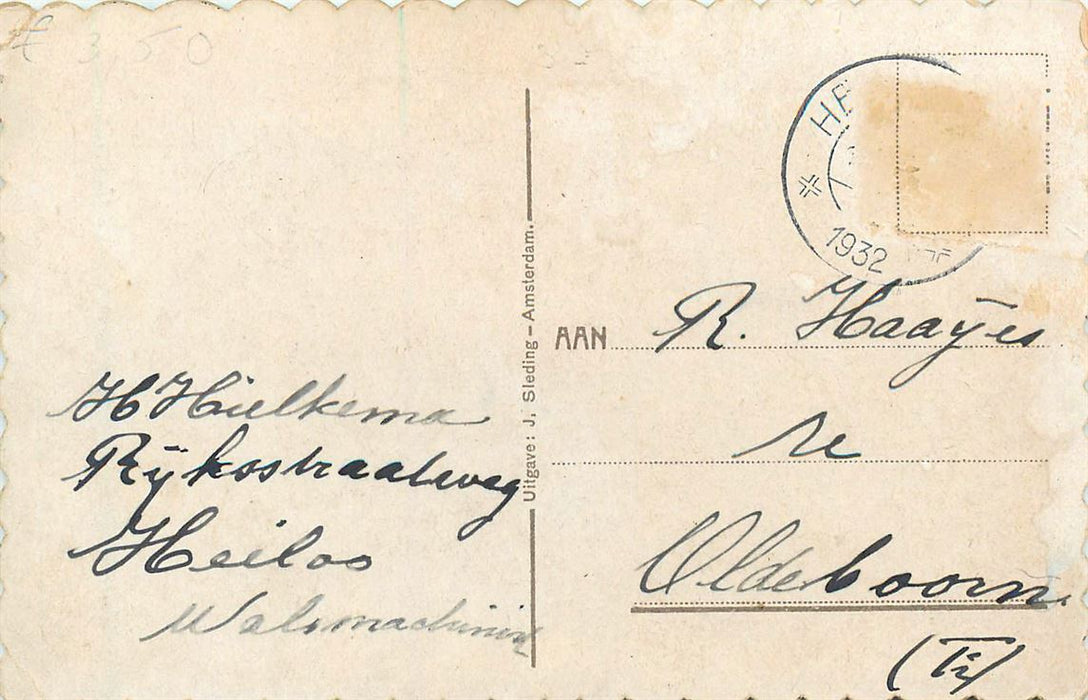 £ 3,50
HE
1932
Uitgave: J. Sleding – Amsterdam.
AAN R. Haayes
te
Oldeboorn
(Fr)
H Hielkema
Rijksstraatweg
Heiloo
Walsmachinist